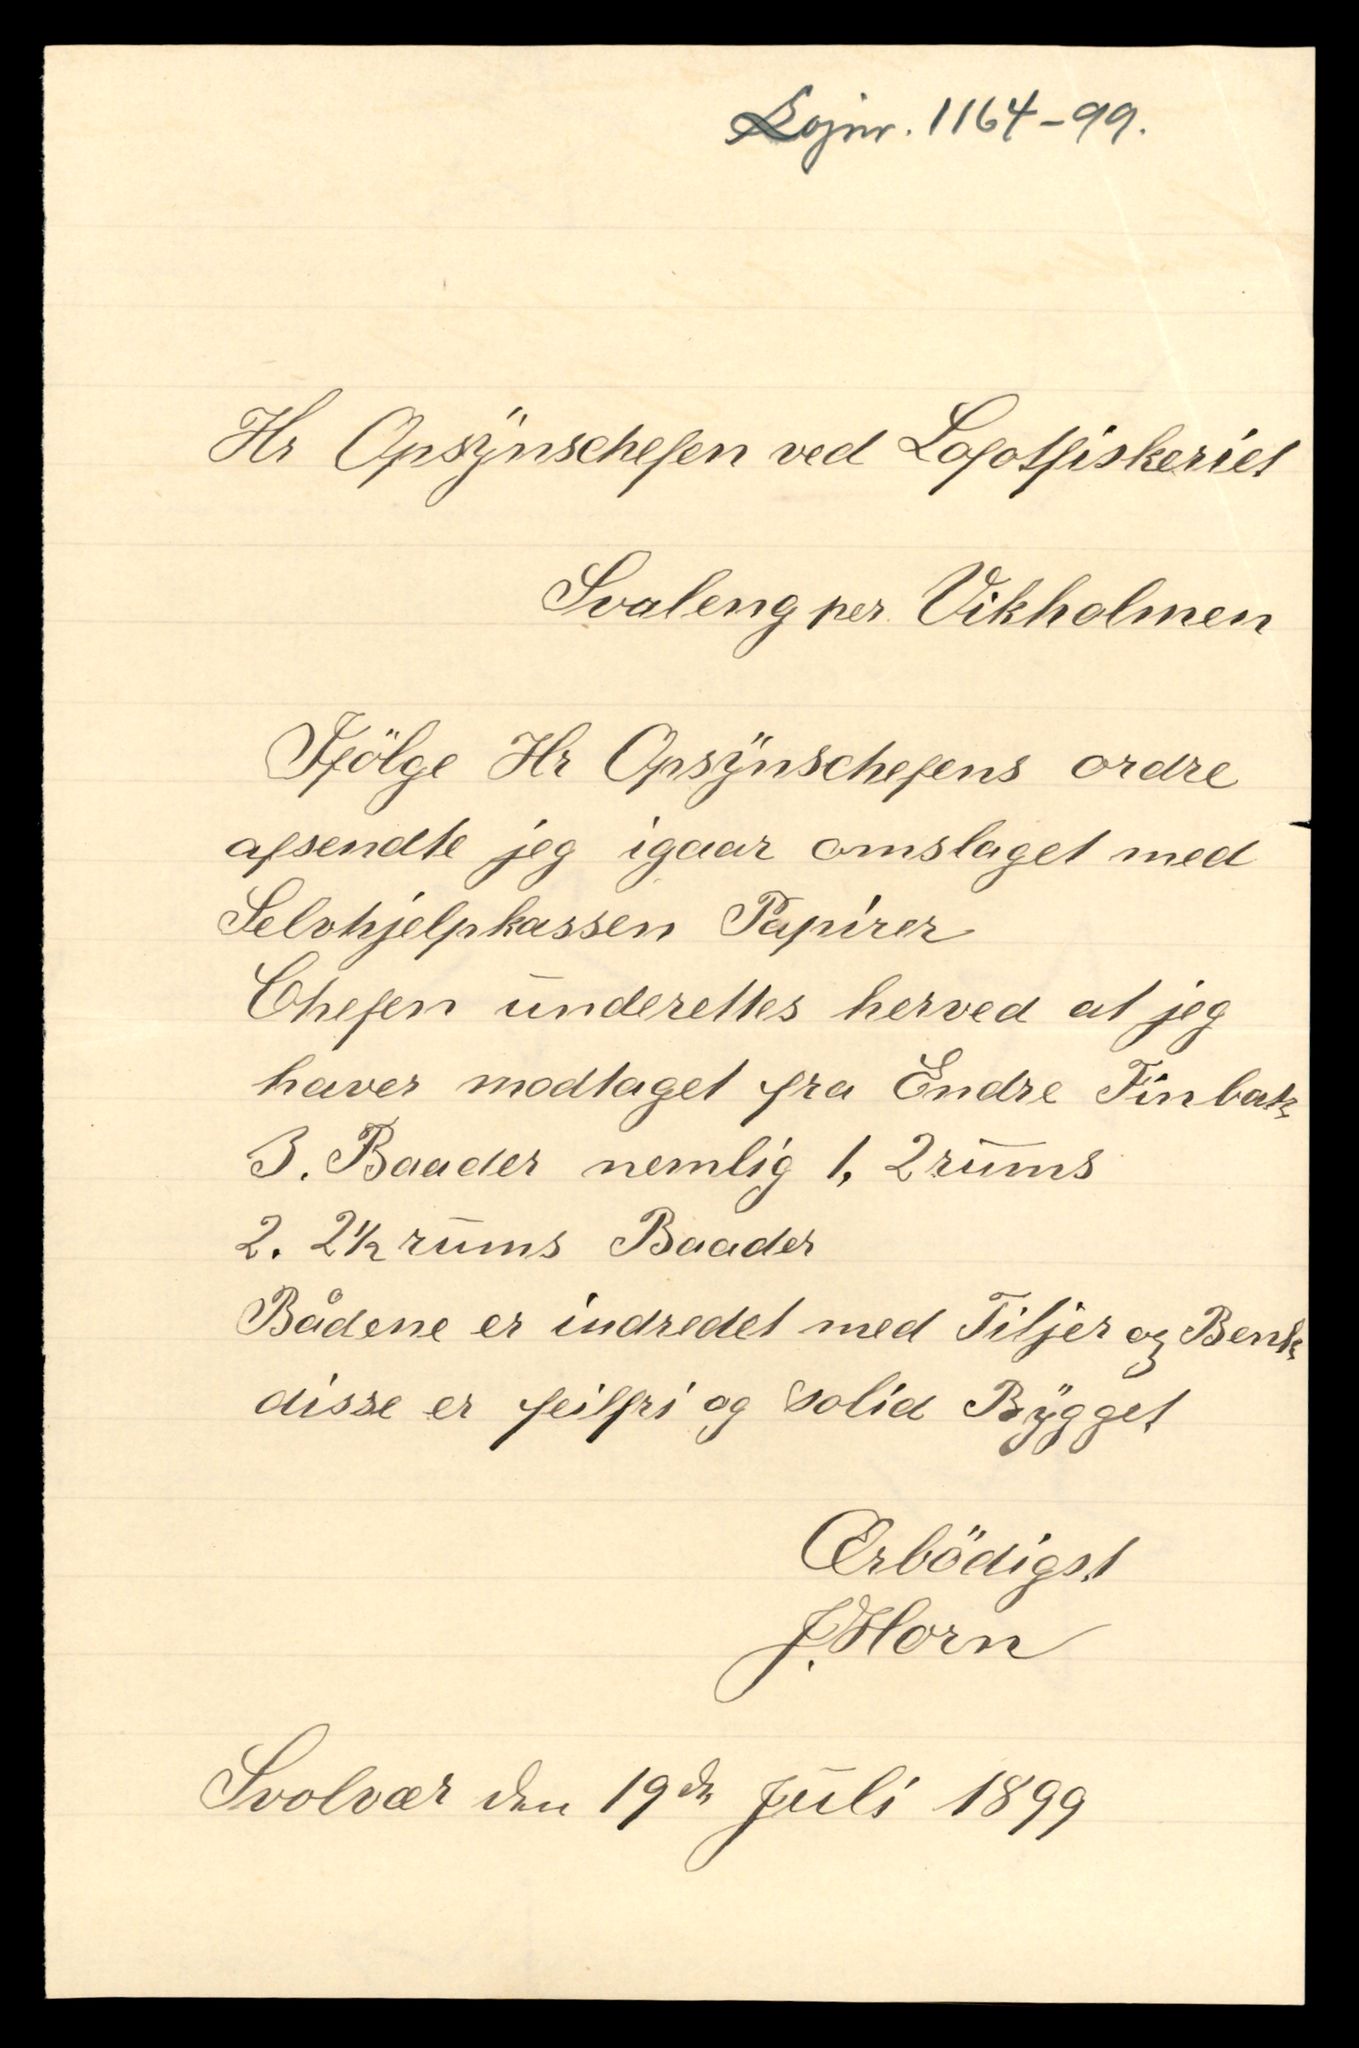 Lojnr. 1164-99.
Hr Opsÿnschefen ved Lofotfiskeriet
Svaleng per Vikholmen
Ifölge Hr Opsÿnschefens ordre
afsendte jeg igaar omslaget med
Selvhjelpkassen Papirer
Chefen underettes herved at jeg
haver modtaget fra Endre Finbak
3. Baader nemlig 1, 2 rums
2. 2½ rums Baader
Bådene er indredet med Tiljer og Benk
disse er feilfri og solid Bÿgget
Ærbödigst
J. Horn
Svolvær den 19de Juli 1899